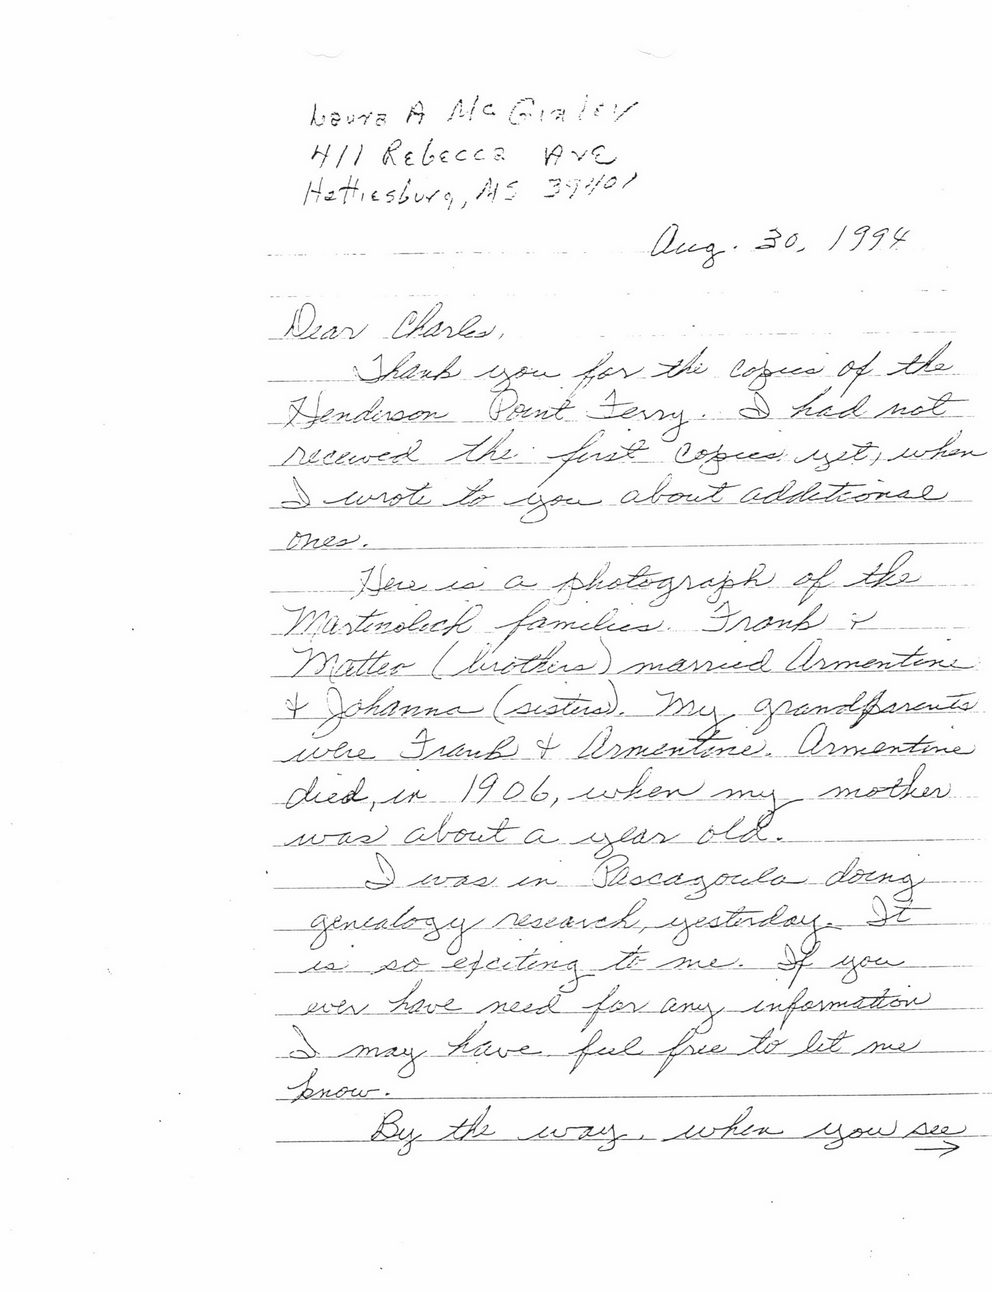 Laura A McGinley
411 Rebecca Ave
Hattiesburg, MS 39401
Aug. 30, 1994
Dear Charles,
Thank you for the copies of the
Henderson Point Ferry. I had not
received the first copies yet, when
I wrote to you about additional
ones.
Here is a photograph of the
Martinolich families. Frank &
Matteo (brothers) married Armentine
& Johanna (sisters). My grandparents
were Frank & Armentine. Armentine
died, in 1906, when my mother
was about a year old.
I was in Pascagoula doing
genealogy research, yesterday. It
is so exciting to me. If you
ever have need for any information
I may have feel free to let me
know.
By the way, when you see
→